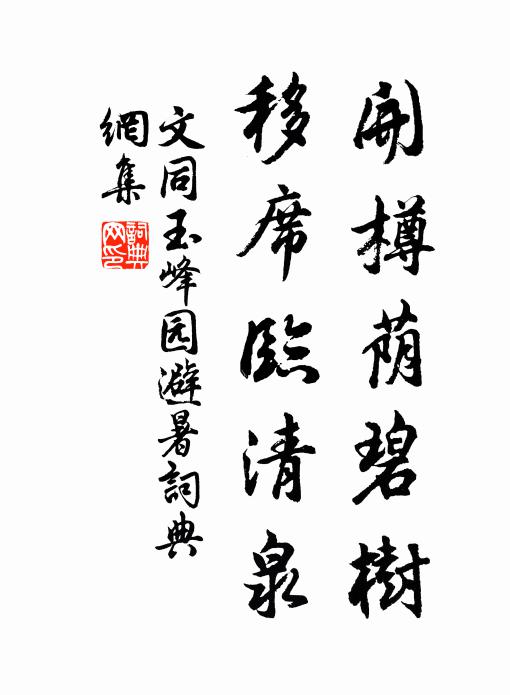 開樽荫碧樹
移席臨清泉
文同玉峰园避暑詞典
網集
詞典网印